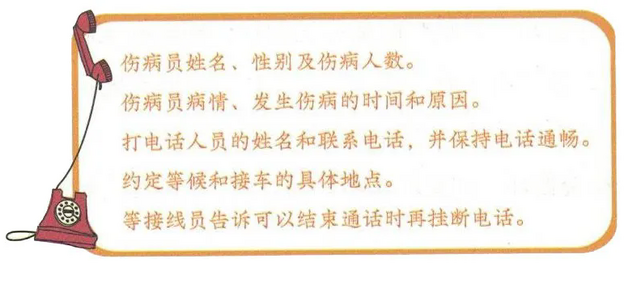 伤病员姓名、性别及伤病人数。
伤病员病情、发生伤病的时间和原因。
打电话人员的姓名和联系电话，并保持电话通畅。
约定等候和接车的具体地点。
等接线员告诉可以结束通话时再挂断电话。